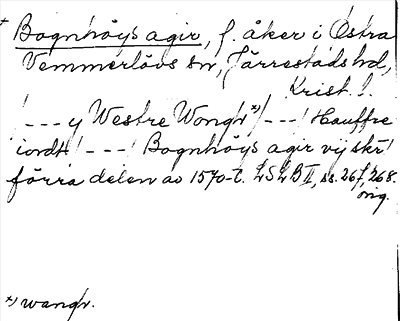 * Bognhöys agir, f. åker i Östra
Vemmerlövs sn, Järrestads hd,
Krist. l.
! --- y Westre Wongr *) --- ! Hauffre
iordt ! --- ! Bognhöys agir vj skr !
förra delen av 1570-t. LSLB II, ss. 267, 268.
orig.
*) wangr.